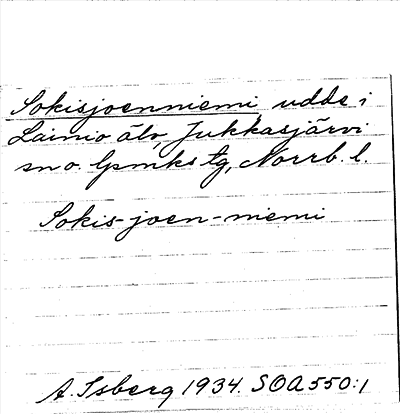 Sokisjoenniemi, udde i
Lainio älv, Jukkasjärvi
sn o. lpmks tg, Norrb. l.
Sokis-joen-niemi
A. Isberg 1934. SOA 550:1